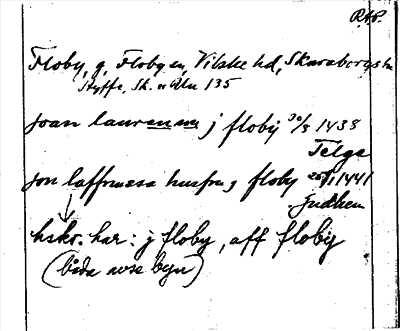 R.A.P.
Floby, g, Floby sn, Vilske hd, Skaraborgs ln
Styffe, Sk. u Un 135
joan laurenssa j floby 30/3 1438
Telge
jon laffruessa husfru j floby 20/1 1441
Gudhem
hskr. har: j floby, aff floby
(båda avse byn)